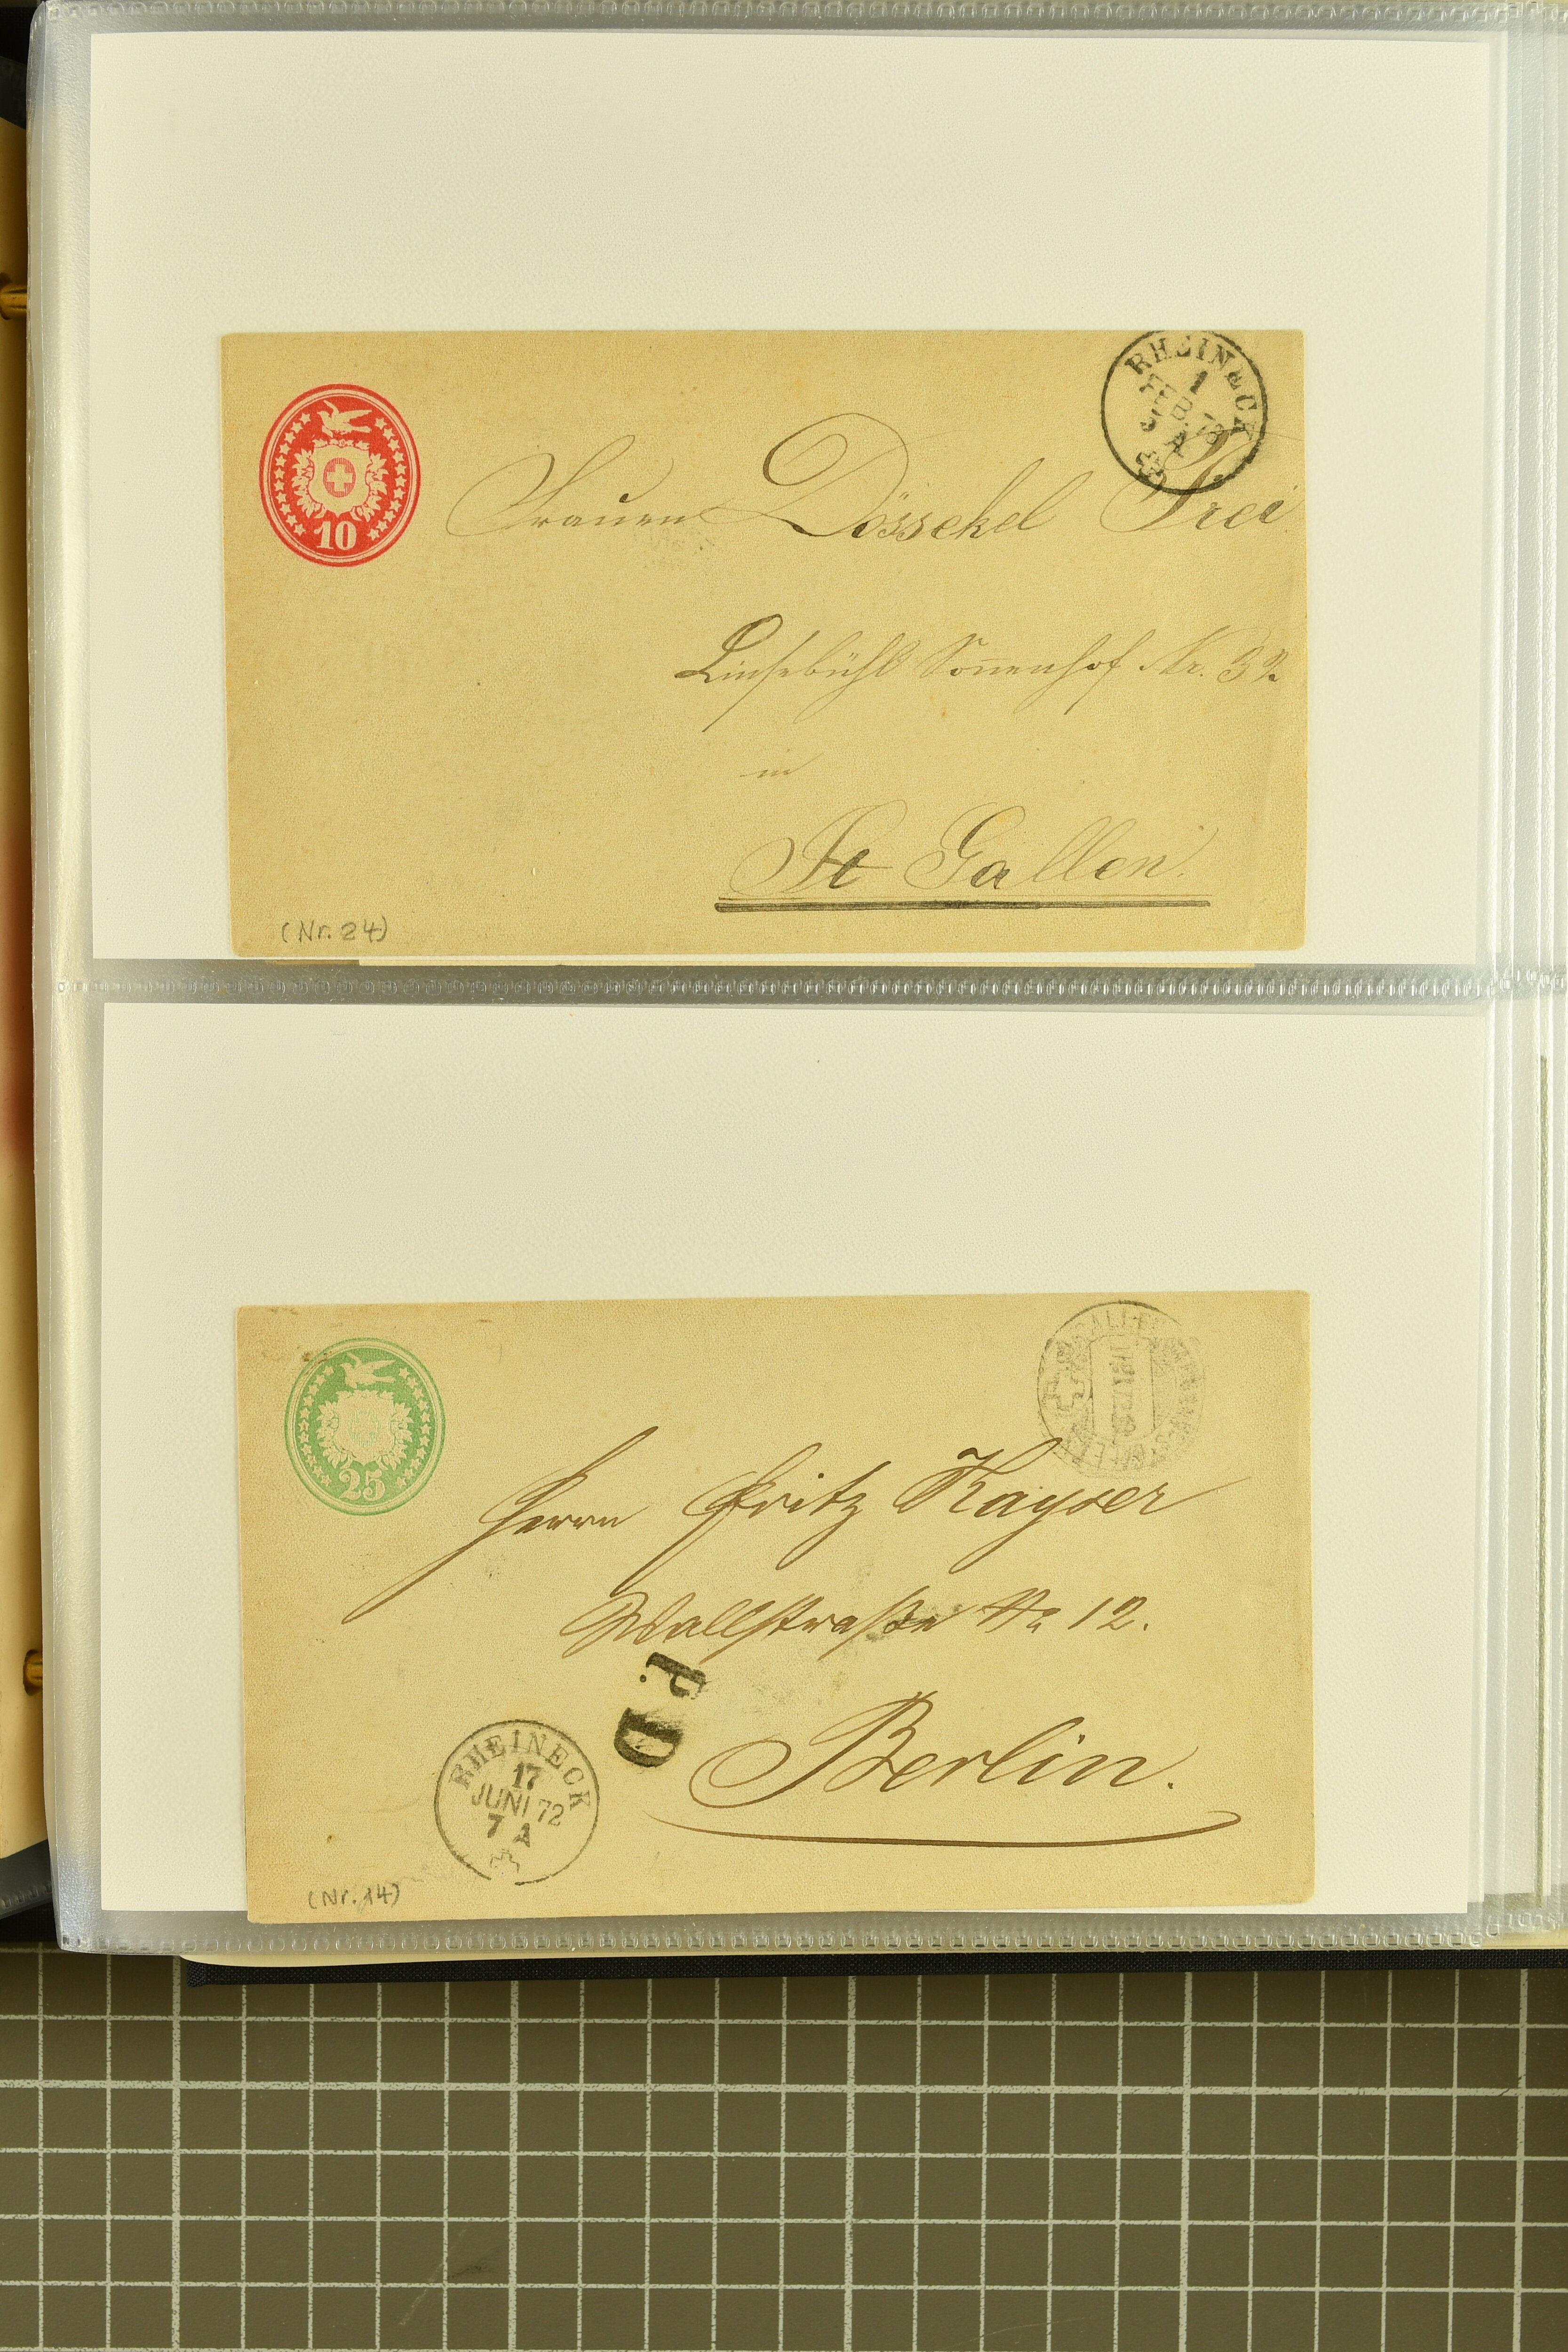 10
RHEINECK
1
FEB. 78
5 A
Frauen Dössekel Frei
Linsebühl Sonnenhof Nr. 32
in
St Gallen.
(Nr. 24)
25
Herrn Fritz Kayser
Wallstraße No 12.
P.D
Berlin.
RHEINECK
17
JUNI 72
7 A
(Nr. 14)